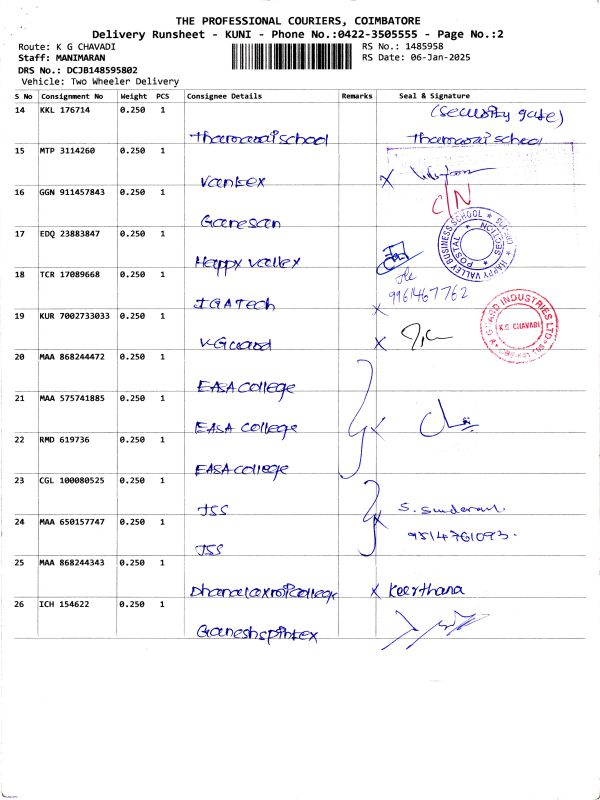 THE PROFESSIONAL COURIERS, COIMBATORE
Delivery Runsheet - KUNI - Phone No.:0422-3505555 - Page No.:2
Route: K G CHAVADI RS No.: 1485958
Staff: MANIMARAN RS Date: 06-Jan-2025
DRS No.: DCJB148595802
Vehicle: Two Wheeler Delivery
S No Consignment No Weight PCS Consignee Details Remarks Seal & Signature
14 KKL 176714 0.250 1 (security gate)
Thamarai school Thamarai school
15 MTP 3114260 0.250 1
Vantex
16 GGN 911457843 0.250 1 C/N
Ganesan
17 EDQ 23883847 0.250 1
Happy valley
HAPPY VALLEY BUSINESS SCHOOL
POSTAL SECTION
18 TCR 17089668 0.250 1
9961467762
IGATech
19 KUR 7002733033 0.250 1
V-Guard
INDUSTRIES LTD
K.G CHAVADI
20 MAA 868244472 0.250 1
EASA college
21 MAA 575741885 0.250 1
EASA college
22 RMD 619736 0.250 1
EASA college
23 CGL 100080525 0.250 1
JSS S. Sunderam.
24 MAA 650157747 0.250 1 9514761093.
JSS
25 MAA 868244343 0.250 1
Dhanalaxmi college X Keerthana
26 ICH 154622 0.250 1
Ganeshspintex